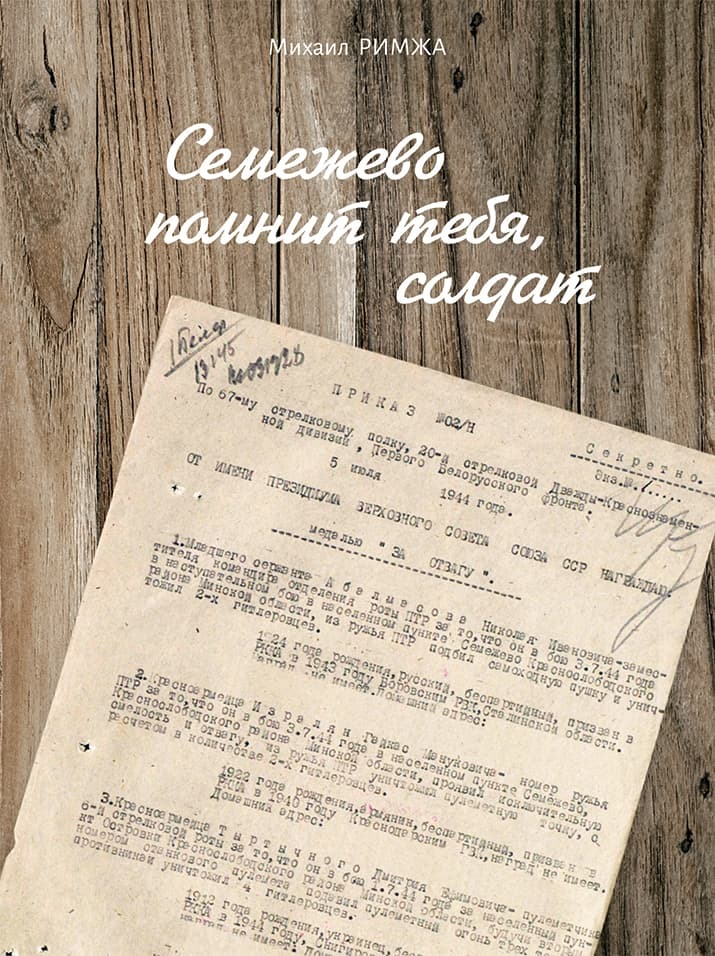 Михаил РИМЖА
Семежево
помнит тебя,
солдат
ПРИКАЗ №02/Н
По 67-му стрелковому полку, 20-й стрелковой Дважды-Краснознамен-
ной дивизии, Первого Белорусского фронта.
Секретно.
Экз.№
5 июля 1944 года.
ОТ ИМЕНИ ПРЕЗИДИУМА ВЕРХОВНОГО СОВЕТА СОЮЗА ССР НАГРАЖДАЮ:
медалью "ЗА ОТВАГУ".
1.Младшего сержанта Абалмасова Николая Ивановича-замес-
тителя командира отделения роты ПТР за то,что он в бою 3.7.44 года
в наступательном бою в населенном пункте Семежево Краснослободского
района Минской области, из ружья ПТР подбил самоходную пушку и унич-
тожил 2-х гитлеровцев.
1924 года рождения,русский, беспартийный, призван в
РККА в 1943 году Воровским РВК,Сталинской области.
наград не имеет.Домашний адрес:
2.Красноармейца Израэлян Гайкас Мануковича- номер ружья
ПТР за то,что он в бою 3.7.44 года в населенном пункте Семежево,
Краснослободского района Минской области, проявил исключительную
смелость и отвагу, из ружья ПТР уничтожил пулеметную точку, с
расчетом в количестве 2-х гитлеровцев.
1922 года рождения,армянин,беспартийный, призван в
РККА в 1940 году Краснодарским ГВК,наград не имеет.
Домашний адрес:
3.Красноармейца Тыртычного Дмитрия Ефимовича- пулеметчика
6-й стрелковой роты за то,что он в бою 1.7.44 года за населенный пун-
кт Островки Краснослободского района Минской области, будучи вторым
номером станкового пулемета подавил пулеметный огонь трех точек
противника и уничтожил 4 гитлеровцев.
1912 года рождения,украинец,
РККА в 1944 году,
наград не имеет.